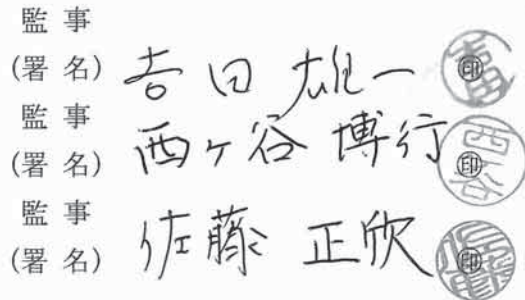 監事
(署名) 吉田 雄一 ㊞
監事
(署名) 西ヶ谷 博行 ㊞
監事
(署名) 佐藤 正欣 ㊞